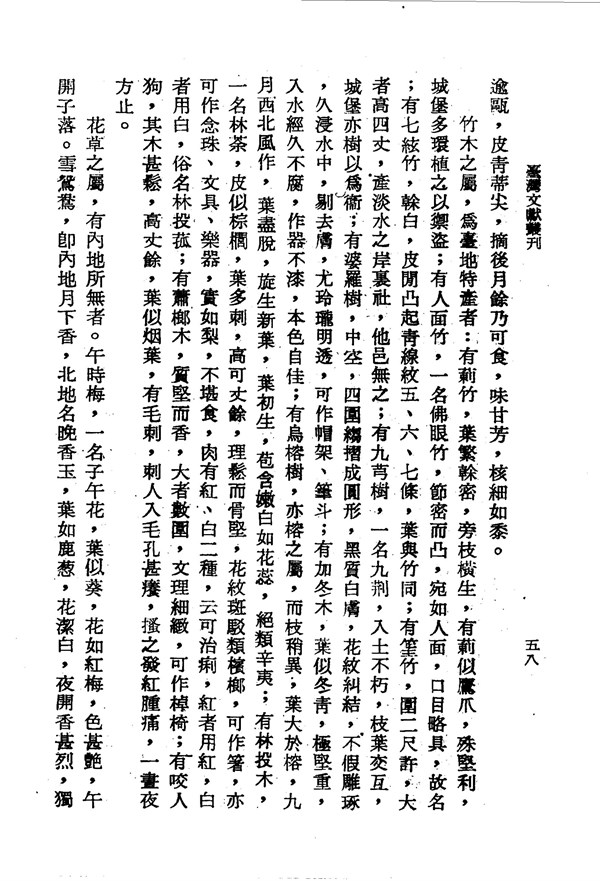 臺灣文獻叢刊
五八
逾甌，皮青蒂尖，摘後月餘乃可食，味甘芳，核細如黍。
竹木之屬，爲臺地特產者：有莿竹，葉繁榦密，旁枝橫生，有莿似鷹爪，殊堅利，
城堡多環植之以禦盜；有人面竹，一名佛眼竹，節密而凸，宛如人面，口目略具，故名
；有七絃竹，榦白，皮閒凸起青線紋五、六、七條，葉與竹同；有筀竹，圍二尺許，大
者高四丈，產淡水之岸裏社，他邑無之；有九芎樹，一名九荆，入土不朽，枝葉交互，
城堡亦樹以爲衞；有婆羅樹，中空，四圍縐摺成圓形，黑質白膚，花紋糾結，不假雕琢
，久浸水中，剔去膚，尤玲瓏明透，可作帽架、筆斗；有加冬木，葉似冬青，極堅重，
入水經久不腐，作器不漆，本色自佳；有鳥榕樹，亦榕之屬，而枝稍異；葉大於榕，九
月西北風作，葉盡脫，旋生新葉，葉初生，苞含嫩白如花蕊，絕類辛夷；有林投木，
一名林荼，皮似棕櫚，葉多刺，高可丈餘，理鬆而骨堅，花紋斑駁類檳榔，可作箸，亦
可作念珠、文具、樂器，實如梨，不堪食，肉有紅、白二種，云可治痢，紅者用紅，白
者用白，俗名林投菰；有蕭榔木，質堅而香，大者數圍，文理細緻，可作棹椅；有咬人
狗，其木甚鬆，高丈餘，葉似烟葉，有毛刺，刺人入毛孔甚癢，搔之發紅腫痛，一晝夜
方止。
花草之屬，有內地所無者。午時梅，一名子午花，葉似葵，花如紅梅，色甚艷，午
開子落。雪鴛鴦，卽內地月下香，北地名晚香玉，葉如鹿葱，花潔白，夜開香甚烈，獨